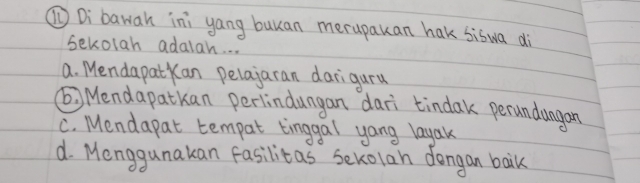 11 Di bawah ini yang bukan merupakan hak siswa di
sekolah adalah...
a. Mendapatkan pelajaran dari guru
b. Mendapatkan perlindungan dari tindak perundungan
c. Mendapat tempat tinggal yang layak
d. Menggunakan fasilitas sekolah dengan baik